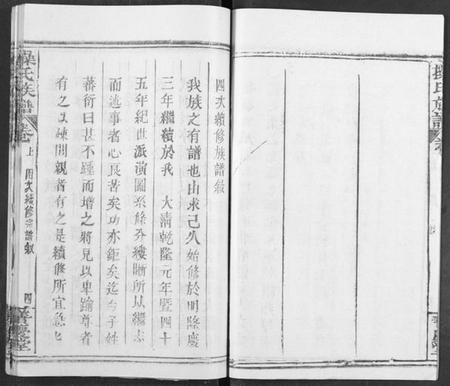 四次續修族譜敘
我族之有譜也由來已久始修於明隆慶
三年繼續於我 大清乾隆元年暨四十
五年紀世派演圖系條分縷晰所以繼志
而述事者心良苦矣功亦鉅矣迄今子姓
蕃衍日甚不踵而增之將見以卑踰尊者
有之以疎間親者有之是續修所宜急也
操氏族譜
卷
上
四次續修宗譜敘
四
操氏族譜
卷